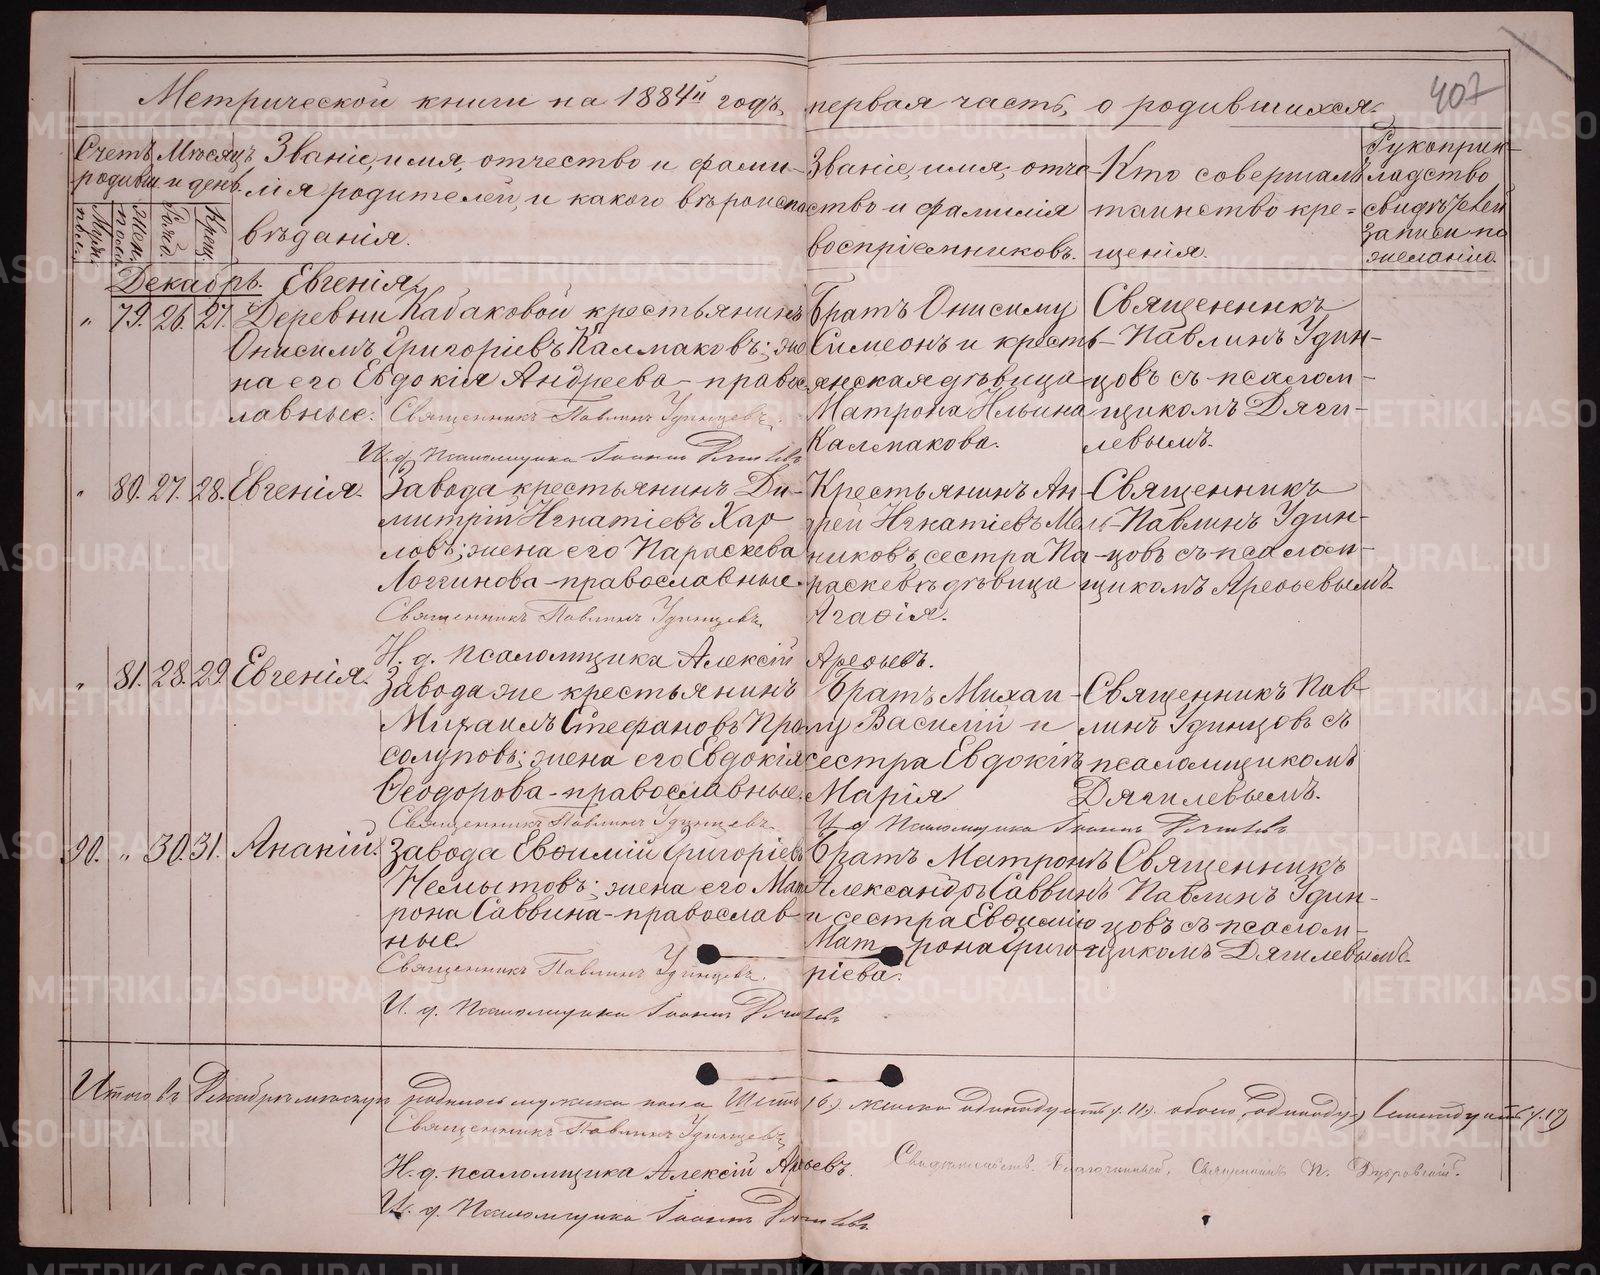 Метрической книги на 1884й годъ, первая часть, о родившихся.
407
Счетъ родивш.
Мѣсяцъ и день.
Званіе, имя, отчество и фами-
лія родителей, и какого вѣроиспо
вѣданія.
Званіе, имя, отче-
ство и фамилія
воспріемниковъ.
Кто совершалъ
таинство кре=
щенія.
Рукоприк-
ладство
свидѣтелей
записи по
желанію.
Декабрь. Евгенія.
" 79. 26. 27.
Деревни Кабаковой крестьянинъ
Онисимъ Григоріевъ Калмаковъ; же
на его Евдокія Андреева - правос
лавные.
Священникъ Павлинъ Удинцевъ.
И. д. Псаломщика Іоаннъ
Братъ Онисиму
Симеонъ и кресть-
янская дѣвица
Матрона Ильина
Калмакова.
Священникъ
Павлинъ Удин-
цовъ съ псалом-
щикомъ Дяги-
левымъ.
" 80. 27. 28. Евгенія.
Завода крестьянинъ Ди-
митрій Игнатіевъ Хар
ловъ; жена его Параскева
Логгинова - православные.
Священникъ Павлинъ Удинцевъ.
И. д. псаломщика Алексій Арефьевъ.
Крестьянинъ Ан-
дрей Игнатіевъ Мель-
никовъ, сестра Па-
раскевѣ дѣвица
Агафія.
Священникъ
Павлинъ Удин-
цовъ съ псалом-
щикомъ Арефьевымъ
" 81. 28. 29. Евгенія.
Завода же крестьянинъ
Михаилъ Стефановъ Про
солуповъ; жена его Евдокія
Ѳеодорова - православные.
Священникъ Павлинъ Удинцевъ.
И. д. Псаломщика Іоаннъ
Братъ Михаи-
лу Василій и
сестра Евдокіѣ
Марія
Священникъ Пав-
линъ Удинцовъ съ
псаломщикомъ
Дягилевымъ.
90. " 30. 31. Ананій.
Завода Евфимій Григоріевъ
Немытовъ; жена его Мат
рона Саввина - православ-
ные
Священникъ Павлинъ Удинцевъ.
И. д. Псаломщика Іоаннъ
Братъ Матронѣ
Александръ Саввинъ
и сестра Евфимію
Матрона Григо-
ріева.
Священникъ
Павлинъ Удин-
цовъ съ псалом-
щикомъ Дягилевымъ.
Итого въ Декабрѣ мѣсяцѣ родилось мужска пола Шесть (6) женска одинадцать (11). обоего (17)
Священникъ Павлинъ Удинцевъ
И. д. псаломщика Алексій Арефьевъ.
И. д. Псаломщика Іоаннъ
Благочинный, Священникъ П.
METRIKI.GASO-URAL.RU